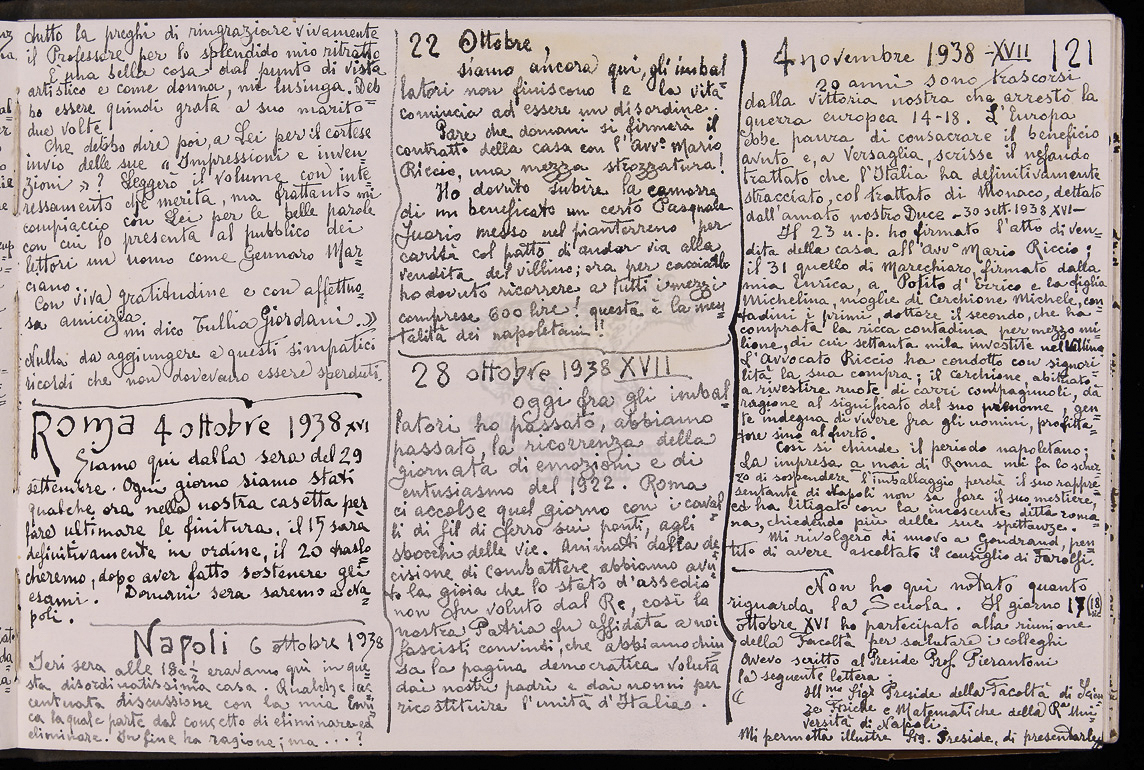 tutto la preghi di ringraziare vivamente
il Professore per lo splendido mio ritratto
È una bella cosa dal punto di vista
artistico e come donna, me lusinga. Deb
bo essere quindi grata a suo marito
due volte.
Che debbo dire poi, a Lei per il cortese
invio delle sue "Impressioni e inven=
zioni"? Leggerò il volume con inte=
ressamento che merita, ma frattanto mi
compiaccio con Lei per le belle parole
con cui lo presenta al pubblico dei
lettori un uomo come Gennaro Mar=
ciano.
Con viva gratitudine e con affettuo=
sa amicizia
mi dico Tullia Giordani.»
Nulla da aggiungere a questi simpatici
ricordi che non dovevano essere sperduti.
Roma 4 ottobre 1938 XVI
Siamo qui dalla sera del 29
settembre. Ogni giorno siamo stati
qualche ora nella nostra casetta per
fare ultimare le finitura. il 15 sarà
definitivamente in ordine, il 20 traslo
cheremo, dopo aver fatto sostenere gli
esami. Domani sera saremo a Na=
poli.
Napoli 6 ottobre 1938
Ieri sera alle 18 e ½ eravamo qui in que
sta, disordinatissima casa. Qualche ac=
centuata discussione con la mia Enri
ca la quale parte dal concetto di eliminare ed
eliminare. In fine ha ragione; ma....?
22 Ottobre,
siamo ancora qui, gli imbal
latori non finiscono e la vita
comincia ad essere un disordine.
Pare che domani si firmerà il
contratto della casa con l'Avvº Mario
Riccio, una mezza strozzatura!
Ho dovuto subire la camorra
di un beneficato un certo Pasquale
Iuorio messo nel pianterreno per
carità col patto di andar via alla
vendita del villino; ora per cacciarlo
ho dovuto ricorrere a tutti i mezzi
comprese 600 lire! questa è la men=
talità dei napoletani!!
28 ottobre 1938 XVII
oggi fra gli imbal
latori ho passato, abbiamo
passato, la ricorrenza della
giornata di emozioni e di
entusiasmo del 1922. Roma
ci accolse quel giorno con i caval
li di fil di ferro sui ponti, agli
sbocchi delle vie. Animati dalla de
cisione di combattere abbiamo avu
to la gioia che lo stato d'assedio
non fu voluto dal Re, così la
nostra Patria fu affidata a noi
fascisti convinti, che abbiamo chiu
sa la pagina democratica voluta
dai nostri padri e dai nonni per
ricostituire l'unità d'Italia.
4 novembre 1938 -XVII 121
20 anni sono trascorsi
dalla vittoria nostra che arrestò la
guerra europea 14-18. L'Europa
ebbe paura di consacrare il beneficio
avuto e, a Versaglia, scrisse il nefando
trattato che l'Italia ha definitivamente
stracciato, col trattato di Monaco, dettato
dall'amato nostro Duce -30 sett. 1938 XVI-
Il 23 u.p. ho firmato l'atto di ven=
dita della casa all'Avvº Mario Riccio;
il 31 quello di Marechiaro, firmato dalla
mia Enrica, a Pofito d'Errico e la figlia
Michelina, moglie di Cerchione Michele, con
tadini i primi, dottore il secondo, che ha
comprata la ricca contadina per mezzo mi=
lione, di cui settanta mila investite nel villino
L'Avvocato Riccio ha condotto con signori=
lità la sua compra; il Cerchione, abituato
a rivestire ruote di carri campagnuoli, dà
ragione al significato del suo prenome, gen=
te indegna di vivere fra gli uomini, profitta=
tore sino al furto.
Così si chiude il periodo napoletano;
La impresa a mai di Roma mi fa lo scher
zo di sospendere l'imballaggio perchè il suo rappre=
sentante di Napoli non sa fare il suo mestiere,
ed ha litigato con la innocente ditta roma=
na, chiedendo più delle sue spettanze.
Mi rivolgerò di nuovo a Gondrand, pen=
tito di avere ascoltato il consiglio di Farolfi.
Non ho qui notato quanto
riguarda la Scuola. Il giorno 17 (18
ottobre XVI ho partecipato alla riunione
della Facoltà per salutare i colleghi
Avevo scritto al Preside Prof. Pierantoni
la seguente lettera.
« Ill.mo Sigr Preside della Facoltà di Scien
ze Fisiche e Matematiche della Rª Uni=
versità di Napoli.
Mi permetta illustre Sig. Preside, di presentarle